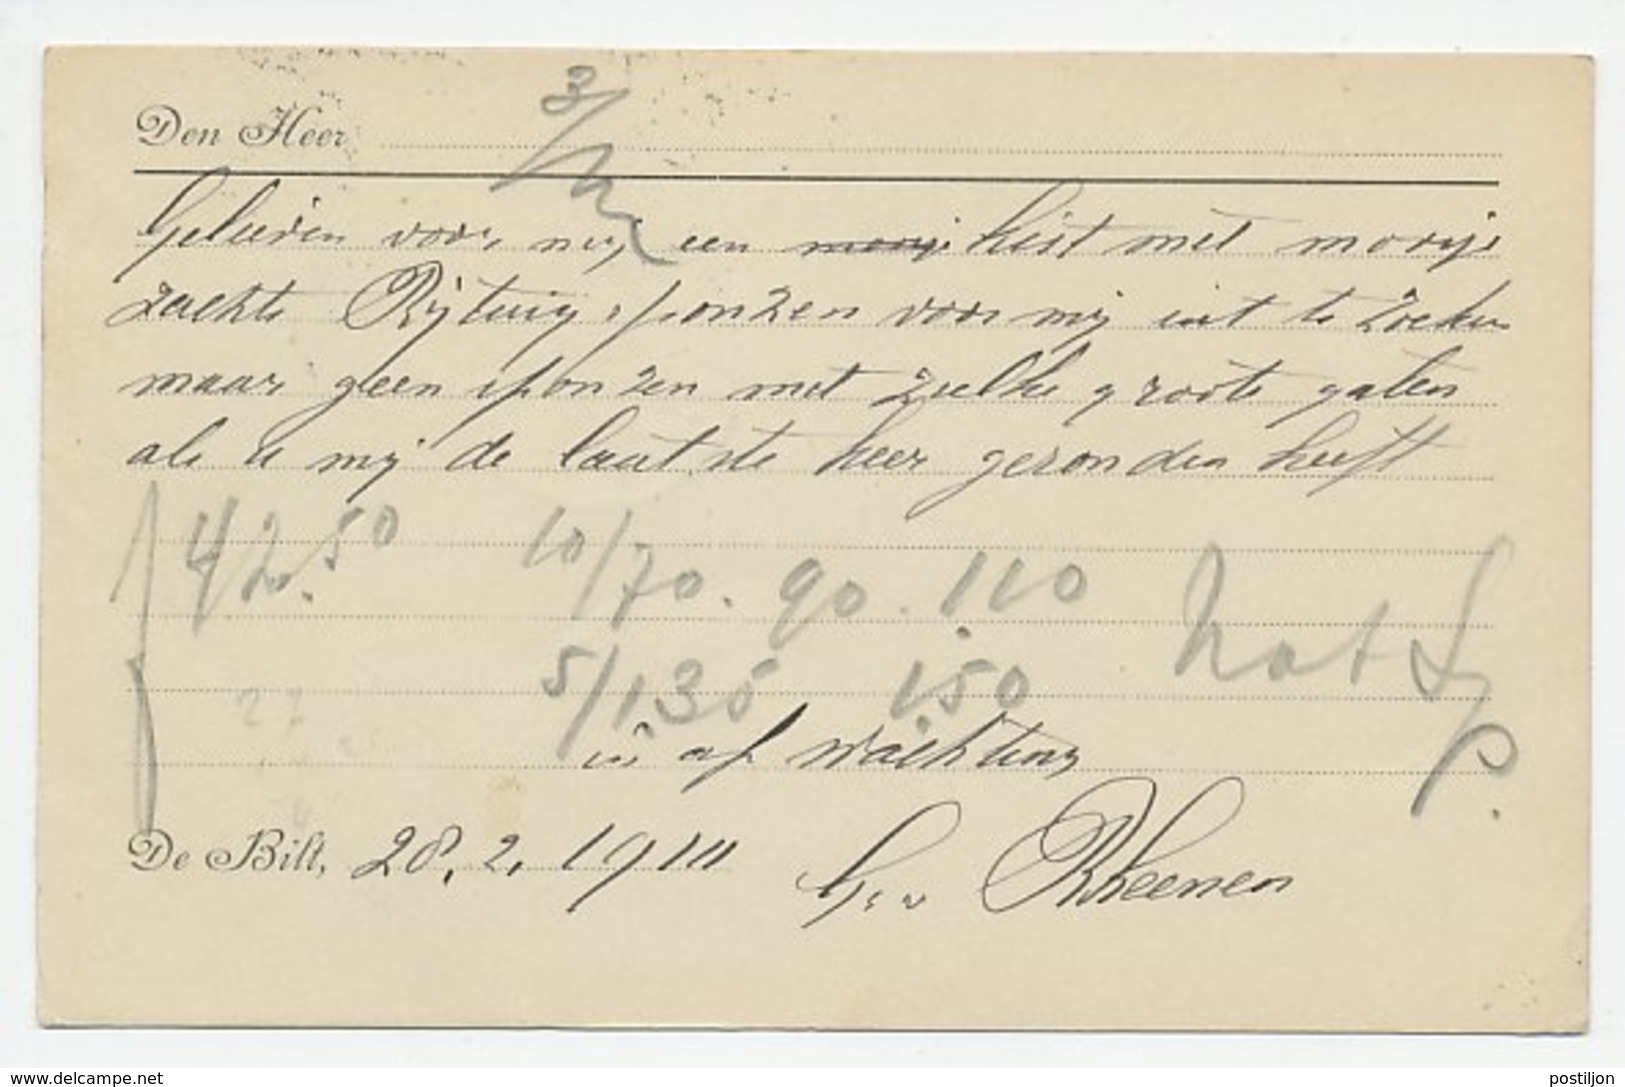 Den Heer
3/
Gelieven voor mij een mooije kist met mooije
zachte Rijtuig sponzen voor mij uit te zoeken
maar geen sponzen met zulke groote gaten
als u mij de laatste keer gezonden heeft
4/2.50 10/70. 90. 110
5/135 150
in afwachting
De Bilt, 28.2.1910
G. v Rheenen
www.delcampe.net
postiljon